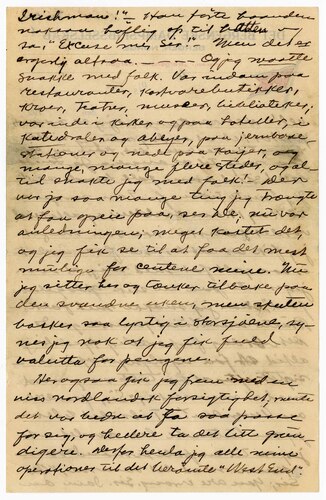 Irishman!" Han förte haanden
naksom höflig op til hatten og
sa, "Excuse me, Sir." Men det er
ergerlig altsaa. — — — Og jeg maatte
snakke med folk. Var indom paa
restauranter, kortvarebutikker,
kroer, teatre, museer, biblioteker;
var inde i kirker og paa hoteller, i
katedraler og abeier, paa jernbane-
stationer og nede paa kaier, og
mange, mange flere steder, og al-
tid snakte jeg med folk! Der
var jo saa mange ting jeg trængte
at faa greie paa, ser De, nu var
anledningen, meget kostet det,
og jeg fik se til at faa det mest
mulige for centene mine. Naar
jeg sitter her og tænker tilbake paa
den svundne uken, mens skuten
basker saa lystig i storsjöene, sy-
nes jeg nok at jeg fik fuld
valuta for pengene.
Her ogsaa fik jeg frem med en
viss nordlandsk forsigtighet, mente
det var bedst at ta saa passe
for sig, og hellere ta det litt grun-
digere. Derfor henla jeg alle mine
operationer til det berömte "West End"